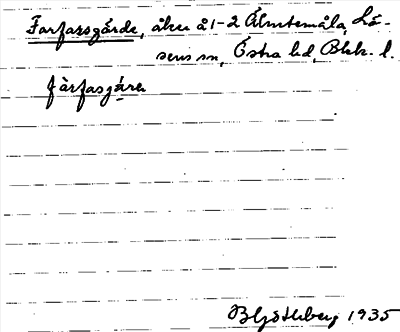 Farfarsgärde, åker å 1-2 Ålmtemåla, Lö-
sens sn, Östra hd, Blek. l.
fàrfasgára
B Götlberg 1935